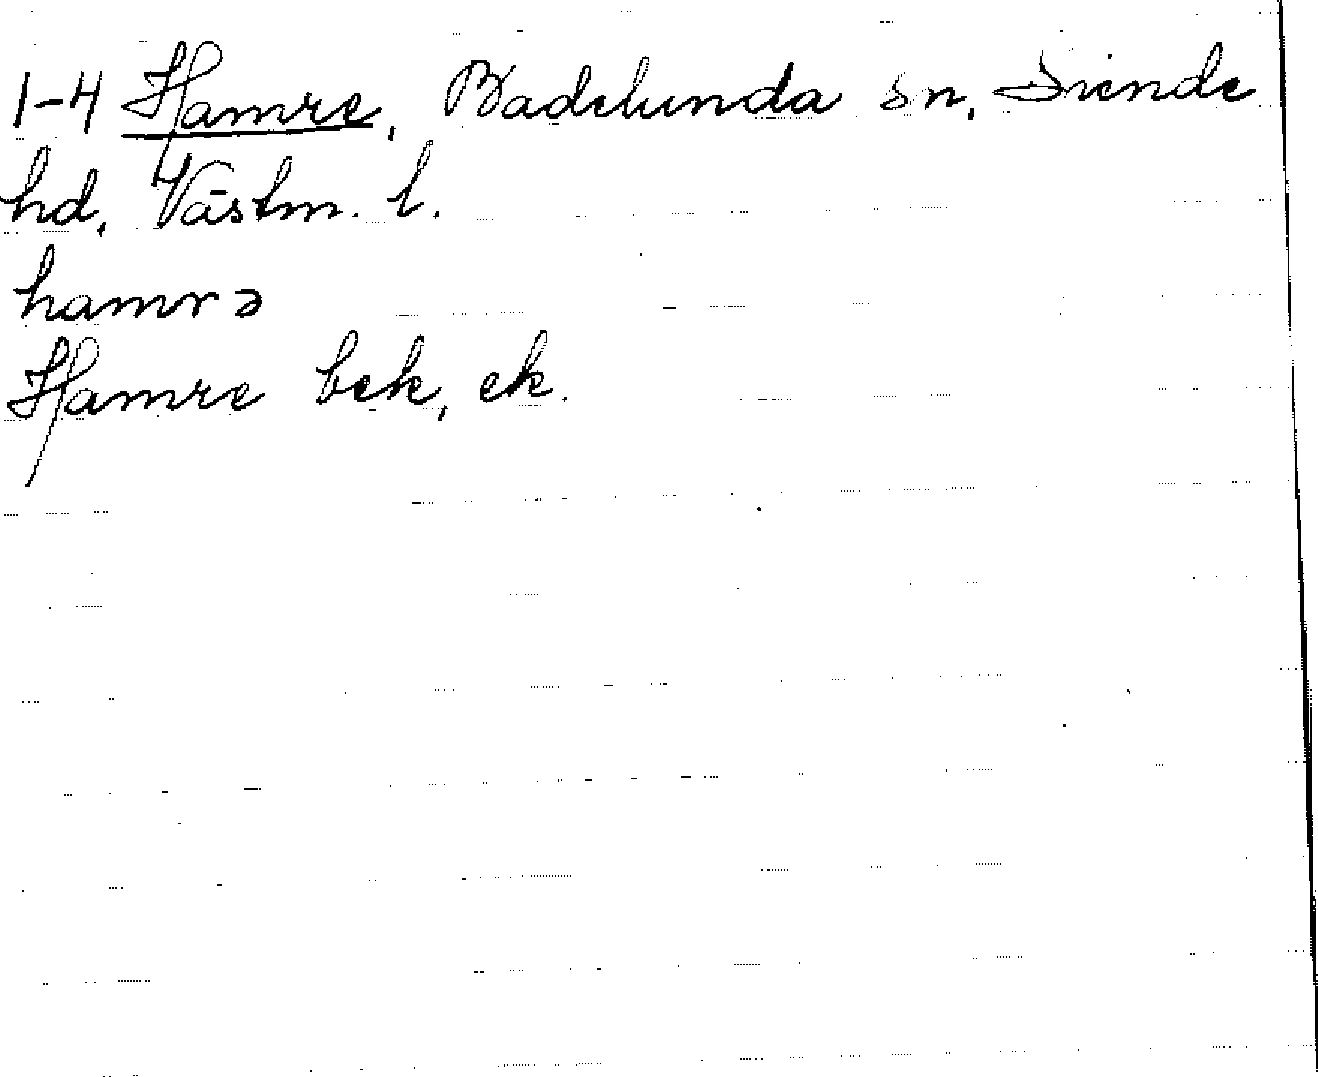 1-4 Hamre, Badelunda sn, Siende
hd, Västm. l.
hamrə
Hamre bek, ek.